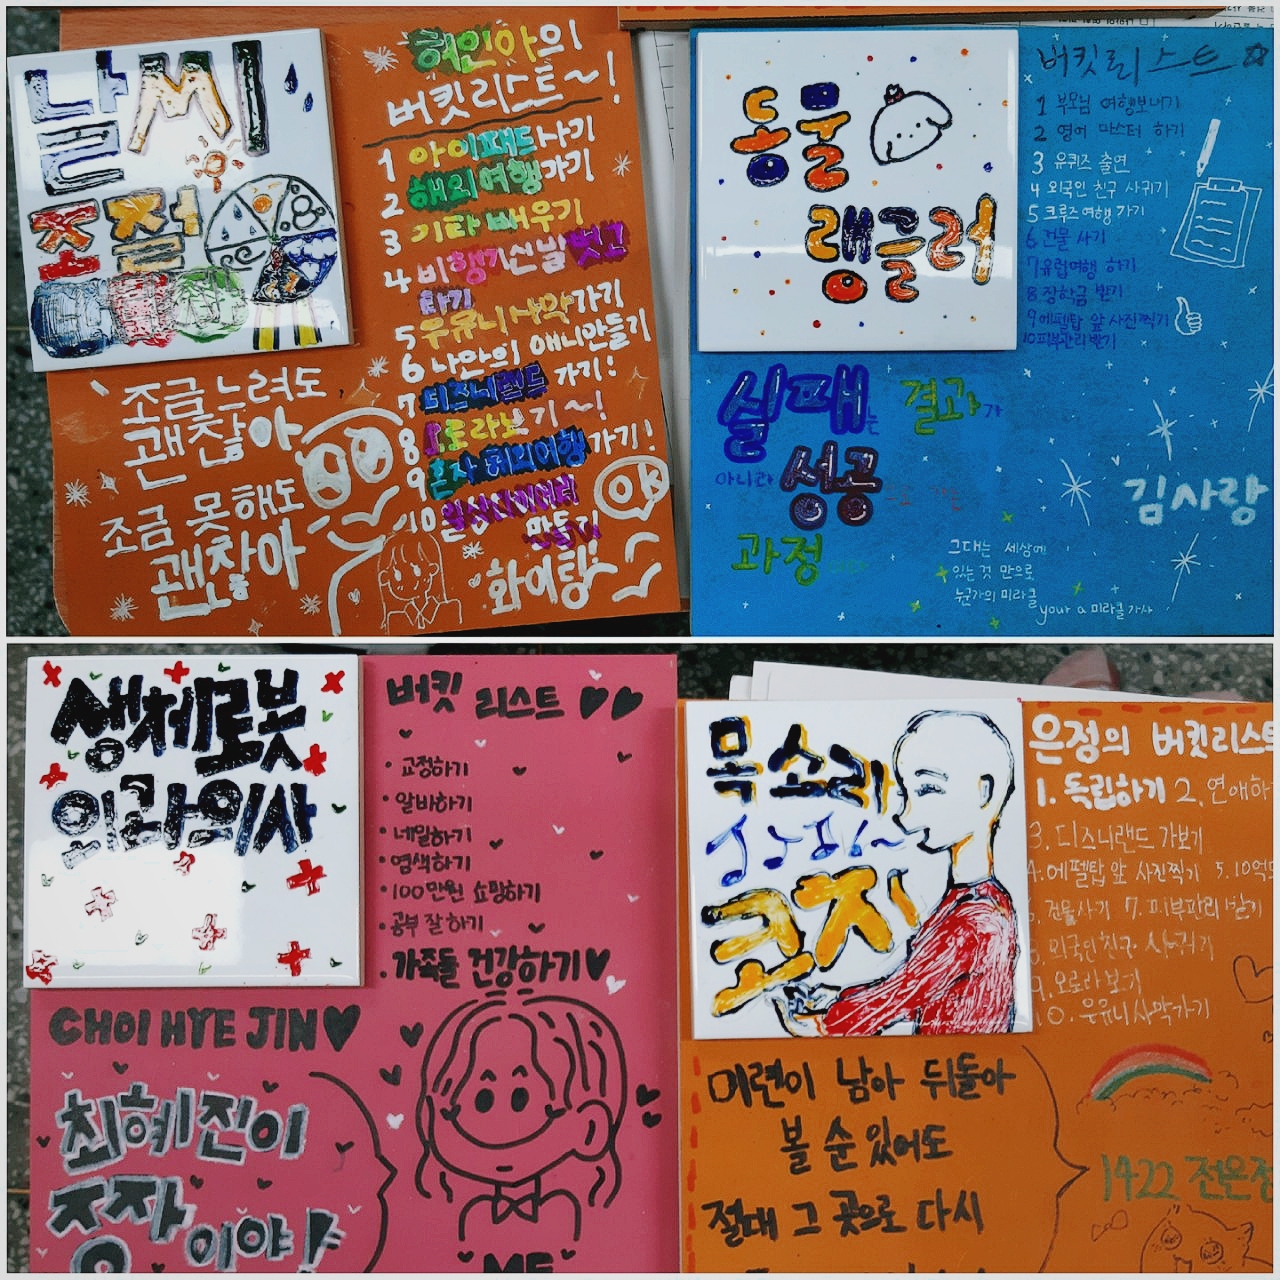 날씨
조절
현인아의
버킷리스트~!
1 아이패드사기
2 해외여행가기
3 기타 배우기
4 비행기신발벗고
타기
5 우유니사막가기
6 나만의 애니만들기
7 디즈니랜드 가기!
8 오로라보기~!
9 혼자 해외여행가기!
10
만들기
조금 느려도
괜찮아
조금 못해도
괜찮아
OK
화이팅!
동물
랭글러
버킷리스트
1 부모님 여행보내기
2 영어 마스터 하기
3 유퀴즈 출연
4 외국인 친구 사귀기
5 크루즈여행 가기
6 건물 사기
7 유럽여행 하기
8 장학금 받기
9 에펠탑 앞 사진찍기
10 피부관리받기
실패는 결과가
아니라 성공으로 가는
과정
김사랑
그대는 세상에
있는 것 만으로
누군가의 미라클
your a 미라클 가사
생체로봇
외과의사
버킷 리스트
• 교정하기
• 알바하기
• 네일하기
• 염색하기
• 100만원 쇼핑하기
• 공부 잘하기
• 가족들 건강하기
CHOI HYE JIN
최혜진이
짱짱이야!
ME
목소리
코치
은정의 버킷리스트
1. 독립하기 2. 연애하
3. 디즈니랜드 가보기
4. 에펠탑 앞 사진찍기 5. 10억
6. 건물사기 7. 피부관리 받기
8. 외국인친구 사귀기
9. 오로라보기
10. 우유니사막가기
미련이 남아 뒤돌아
볼 순 있어도
절대 그 곳으로 다시
1422 전은정